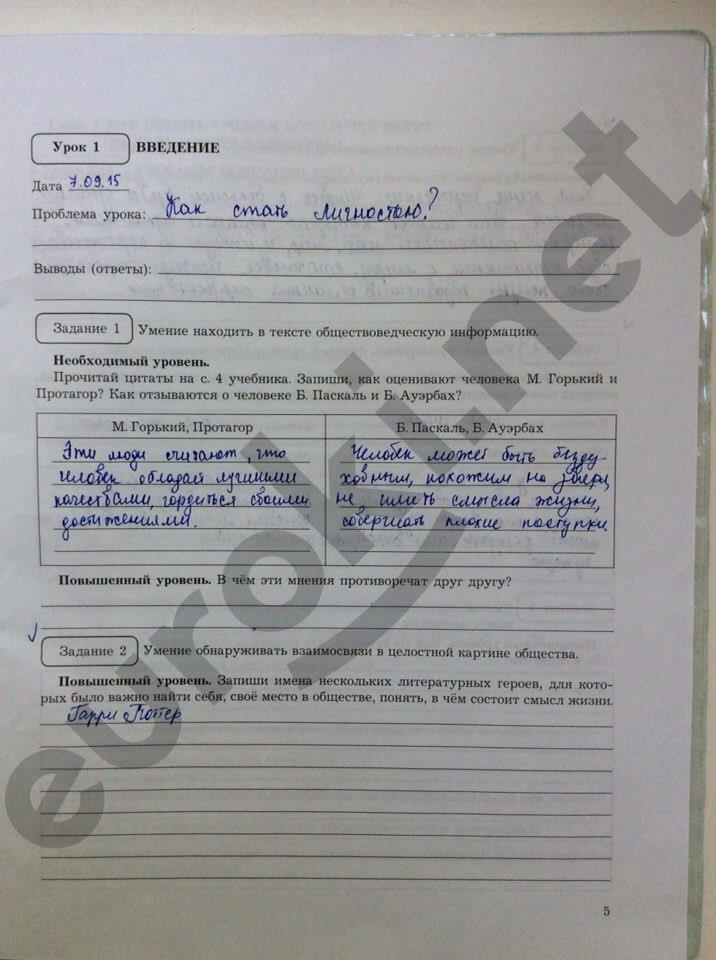 Урок 1 ВВЕДЕНИЕ
Дата 7.09.15
Проблема урока: Как стать личностью?
Выводы (ответы):
Задание 1 Умение находить в тексте обществоведческую информацию.
Необходимый уровень.
Прочитай цитаты на с. 4 учебника. Запиши, как оценивают человека М. Горький и
Протагор? Как отзываются о человеке Б. Паскаль и Б. Ауэрбах?
М. Горький, Протагор
Эти люди считают, что
человек обладай лучшими
качествами, гордиться своими
достижениями.
Б. Паскаль, Б. Ауэрбах
Человек может быть безду-
ховным, похожим на зверя,
не иметь смысла жизни,
совершать плохие поступки
Повышенный уровень. В чём эти мнения противоречат друг другу?
Задание 2 Умение обнаруживать взаимосвязи в целостной картине общества.
Повышенный уровень. Запиши имена нескольких литературных героев, для кото-
рых было важно найти себя, своё место в обществе, понять, в чём состоит смысл жизни.
Гарри Поттер
5
euroki.net